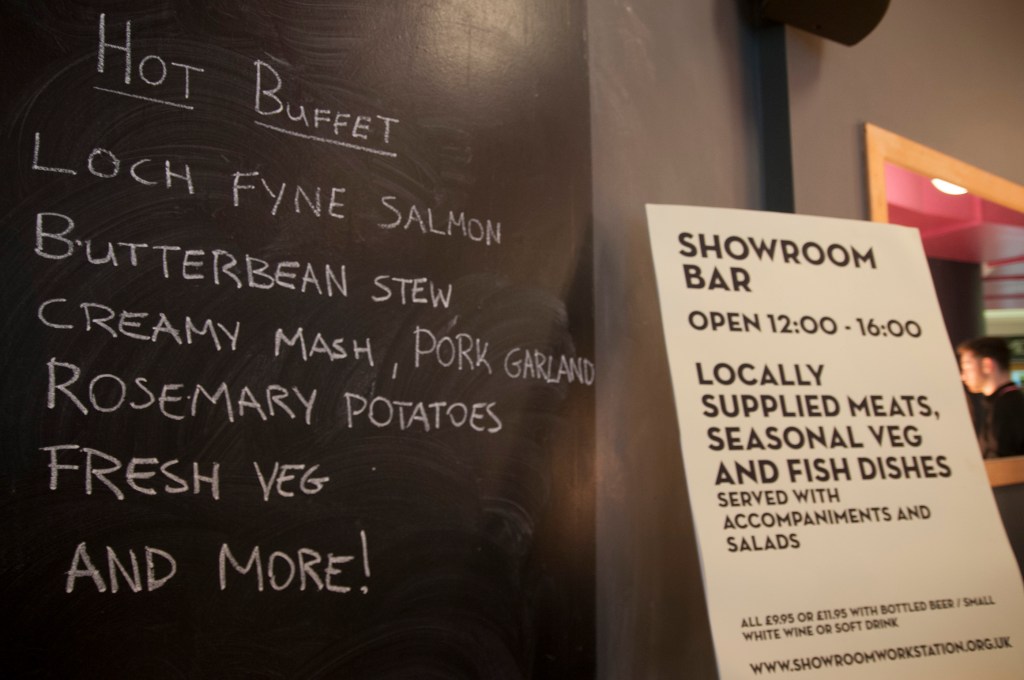 HOT BUFFET
LOCH FYNE SALMON
BUTTERBEAN STEW
CREAMY MASH, PORK GARLAND
ROSEMARY POTATOES
FRESH VEG
AND MORE!
SHOWROOM
BAR
OPEN 12:00 - 16:00
LOCALLY
SUPPLIED MEATS,
SEASONAL VEG
AND FISH DISHES
SERVED WITH
ACCOMPANIMENTS AND
SALADS
ALL £9.95 OR £11.95 WITH BOTTLED BEER / SMALL
WHITE WINE OR SOFT DRINK
WWW.SHOWROOMWORKSTATION.ORG.UK